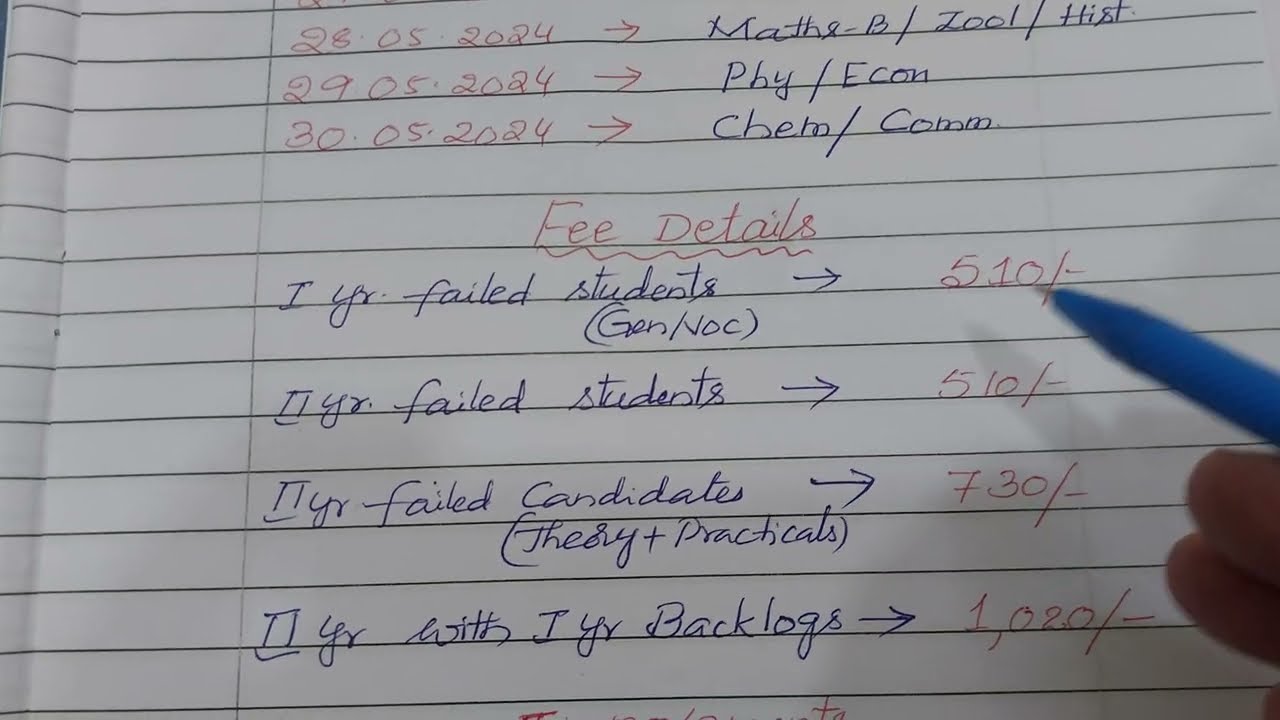 28.05.2024 → Maths-B / Zool / Hist.
29.05.2024 → Phy / Econ
30.05.2024 → Chem / Comm.
Fee Details
I yr. failed students → 510/-
(Gen/Voc)
II yr. failed students → 510/-
II yr failed Candidates → 730/-
(Theory + Practicals)
II yr with I yr Backlogs → 1,020/-